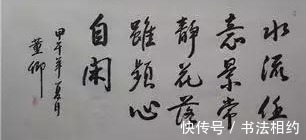 水流任
急景常
静花落
雖頻心
自闲
甲午年夏月
董卿
快传号 / 书法相约